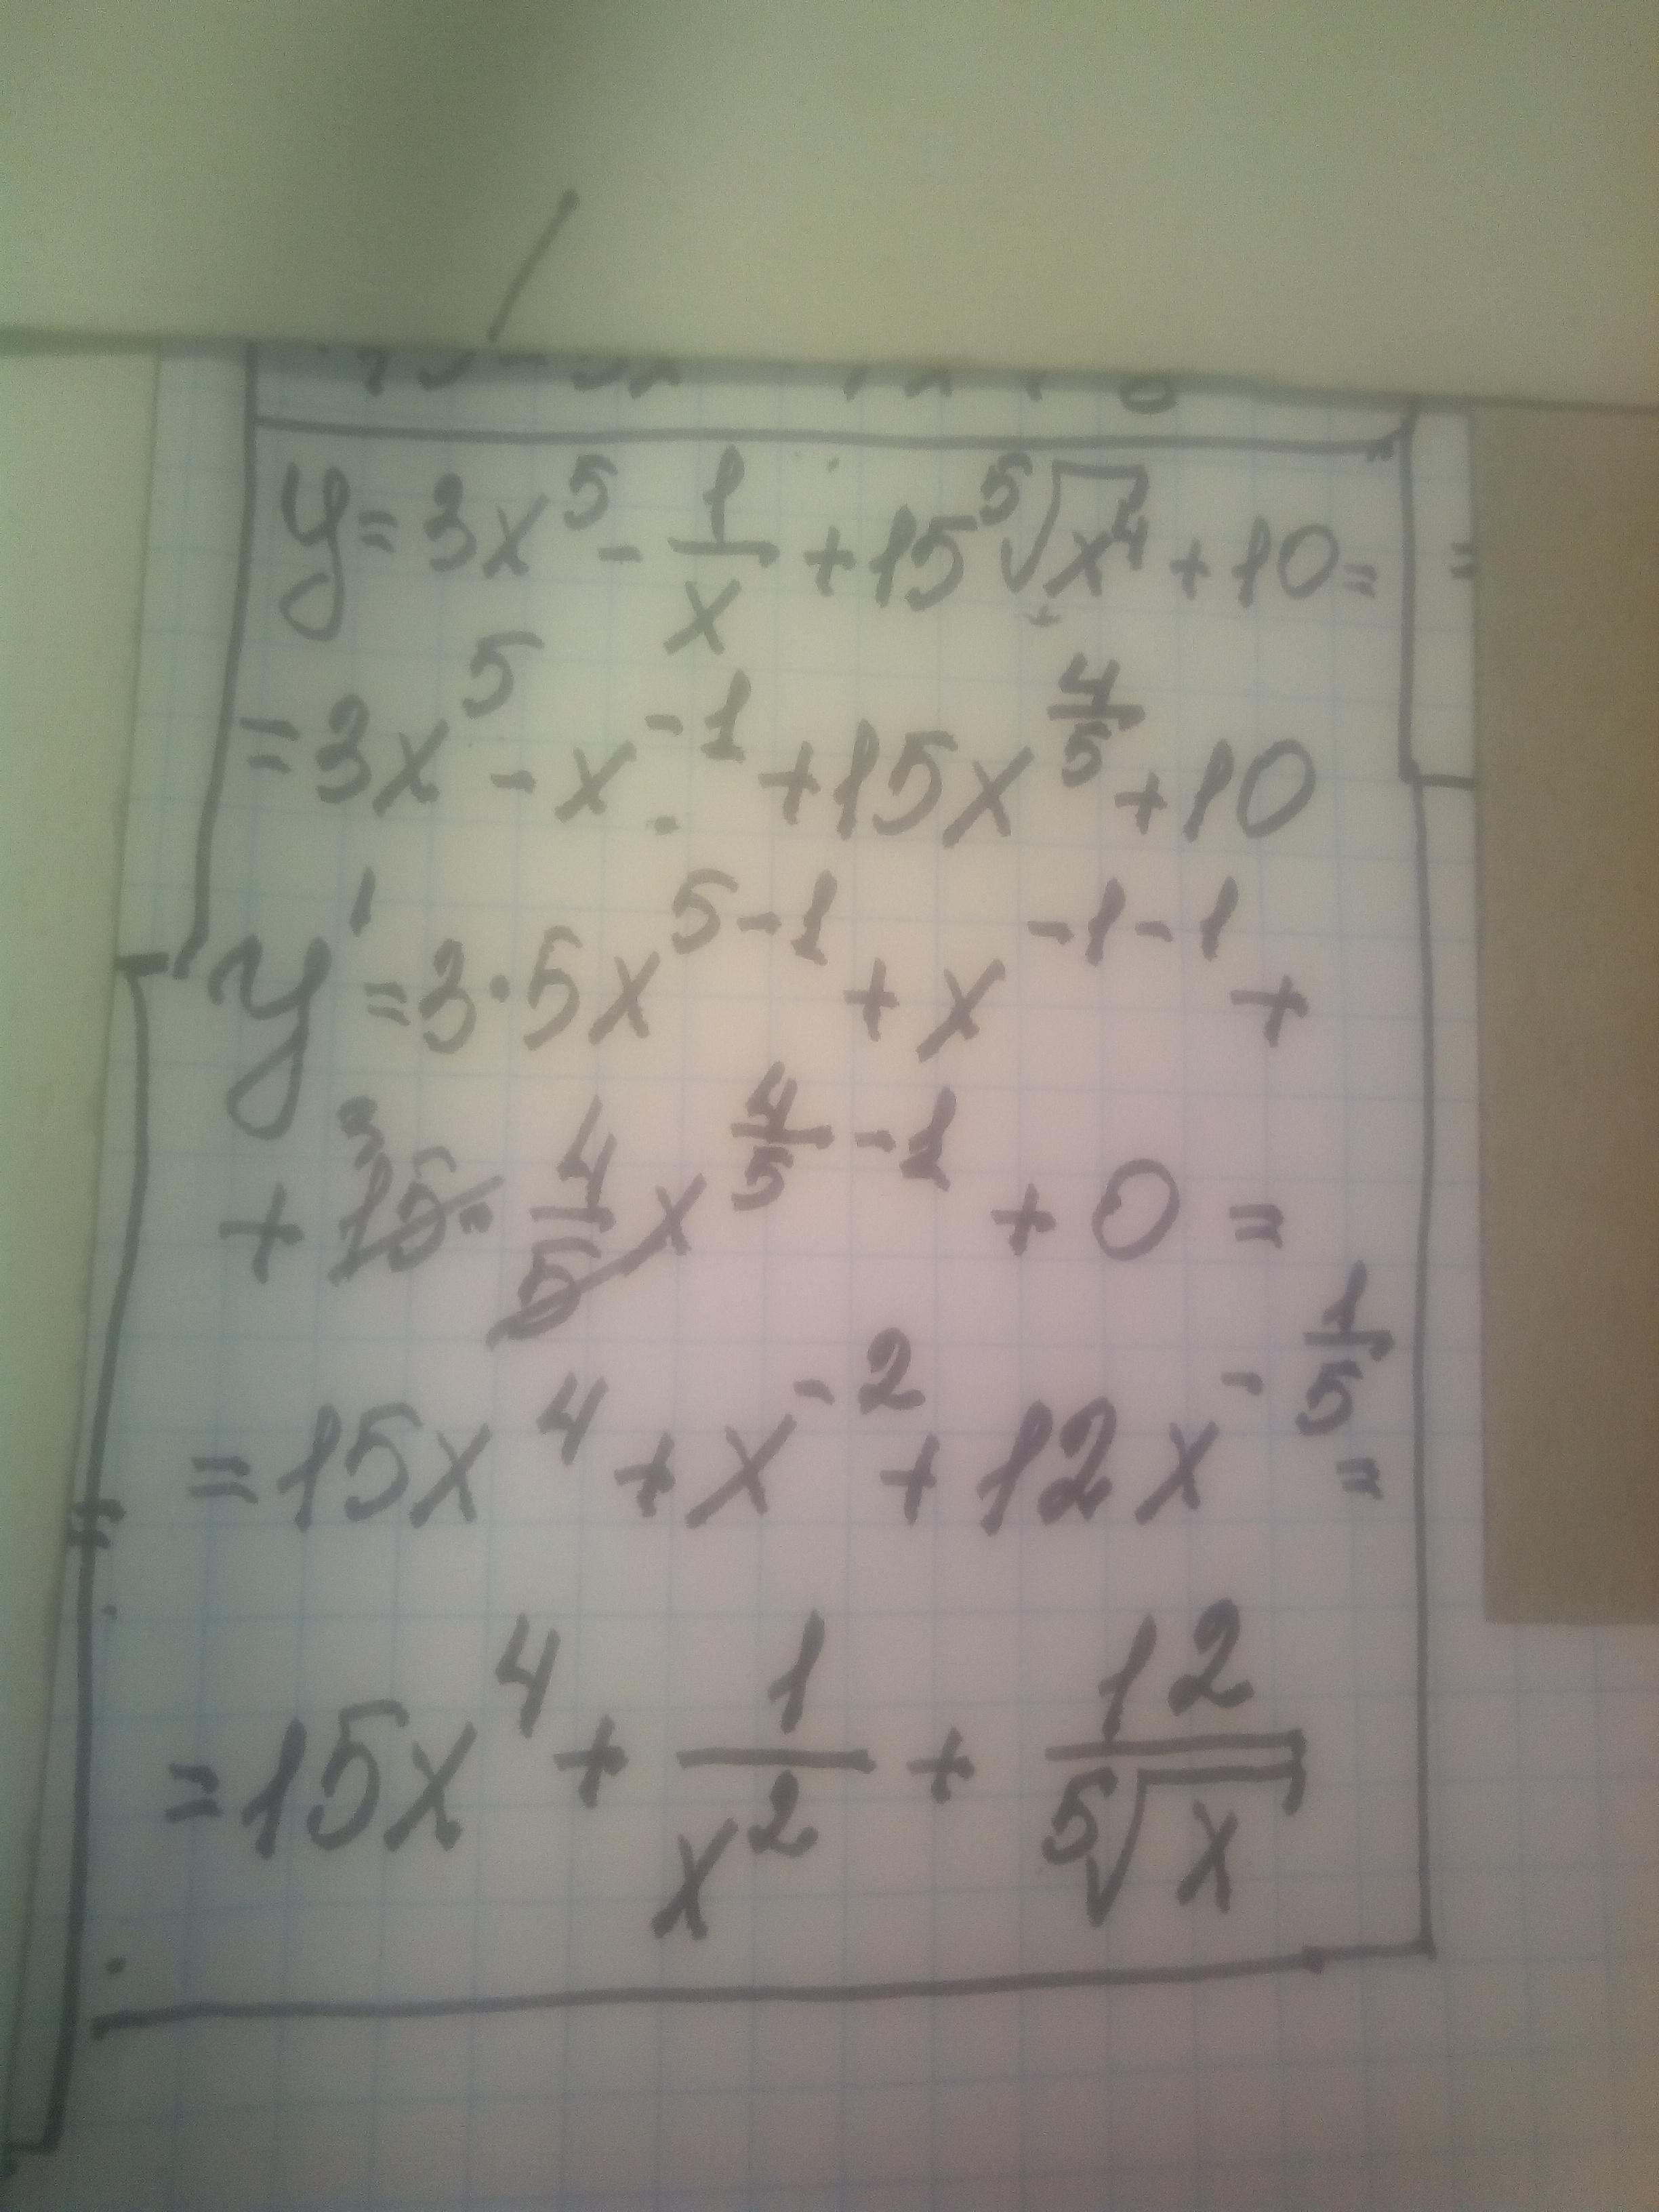 y = 3x⁵ - 1/x + 15 ⁵√x⁴ + 10 =
= 3x⁵ - x⁻¹ + 15x^(4/5) + 10
y' = 3·5x⁵⁻¹ + x⁻¹⁻¹ +
+ 15· 4/5 x^(4/5 - 1) + 0 =
= 15x⁴ + x⁻² + 12x^(-1/5) =
= 15x⁴ + 1/x² + 12/⁵√x